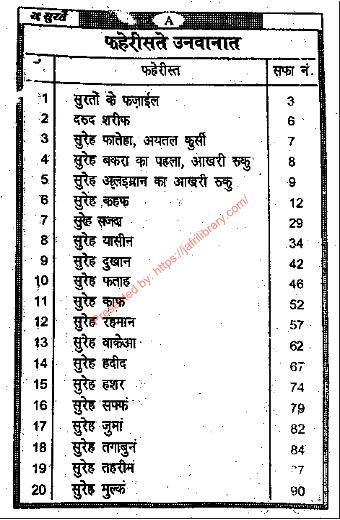 सुरतें
A
फहेरीसते उनवानात
फहेरीस्त सफा नं.
1 सुरतों के फज़ाईल 3
2 दरुद शरीफ 6
3 सुरेह फातेहा, अयतल कुर्सी 7
4 सुरेह बकरा का पहला, आखरी रुकु 8
5 सुरेह अलइम्रान का आखरी रुकु 9
6 सुरेह कहफ 12
7 सुरेह सजदा 29
8 सुरेह यासीन 34
9 सुरेह दुखान 42
10 सुरेह फताह 46
11 सुरेह काफ 52
12 सुरेह रहमान 57
13 सुरेह वाकेआ 62
14 सुरेह हदीद 67
15 सुरेह हशर 74
16 सुरेह सफ्फं 79
17 सुरेह जुमां 82
18 सुरेह तगाबुनं 84
19 सुरेह तहरीमं
20 सुरेह मुल्कं 90
Presented by: https://jafrilibrary.com/